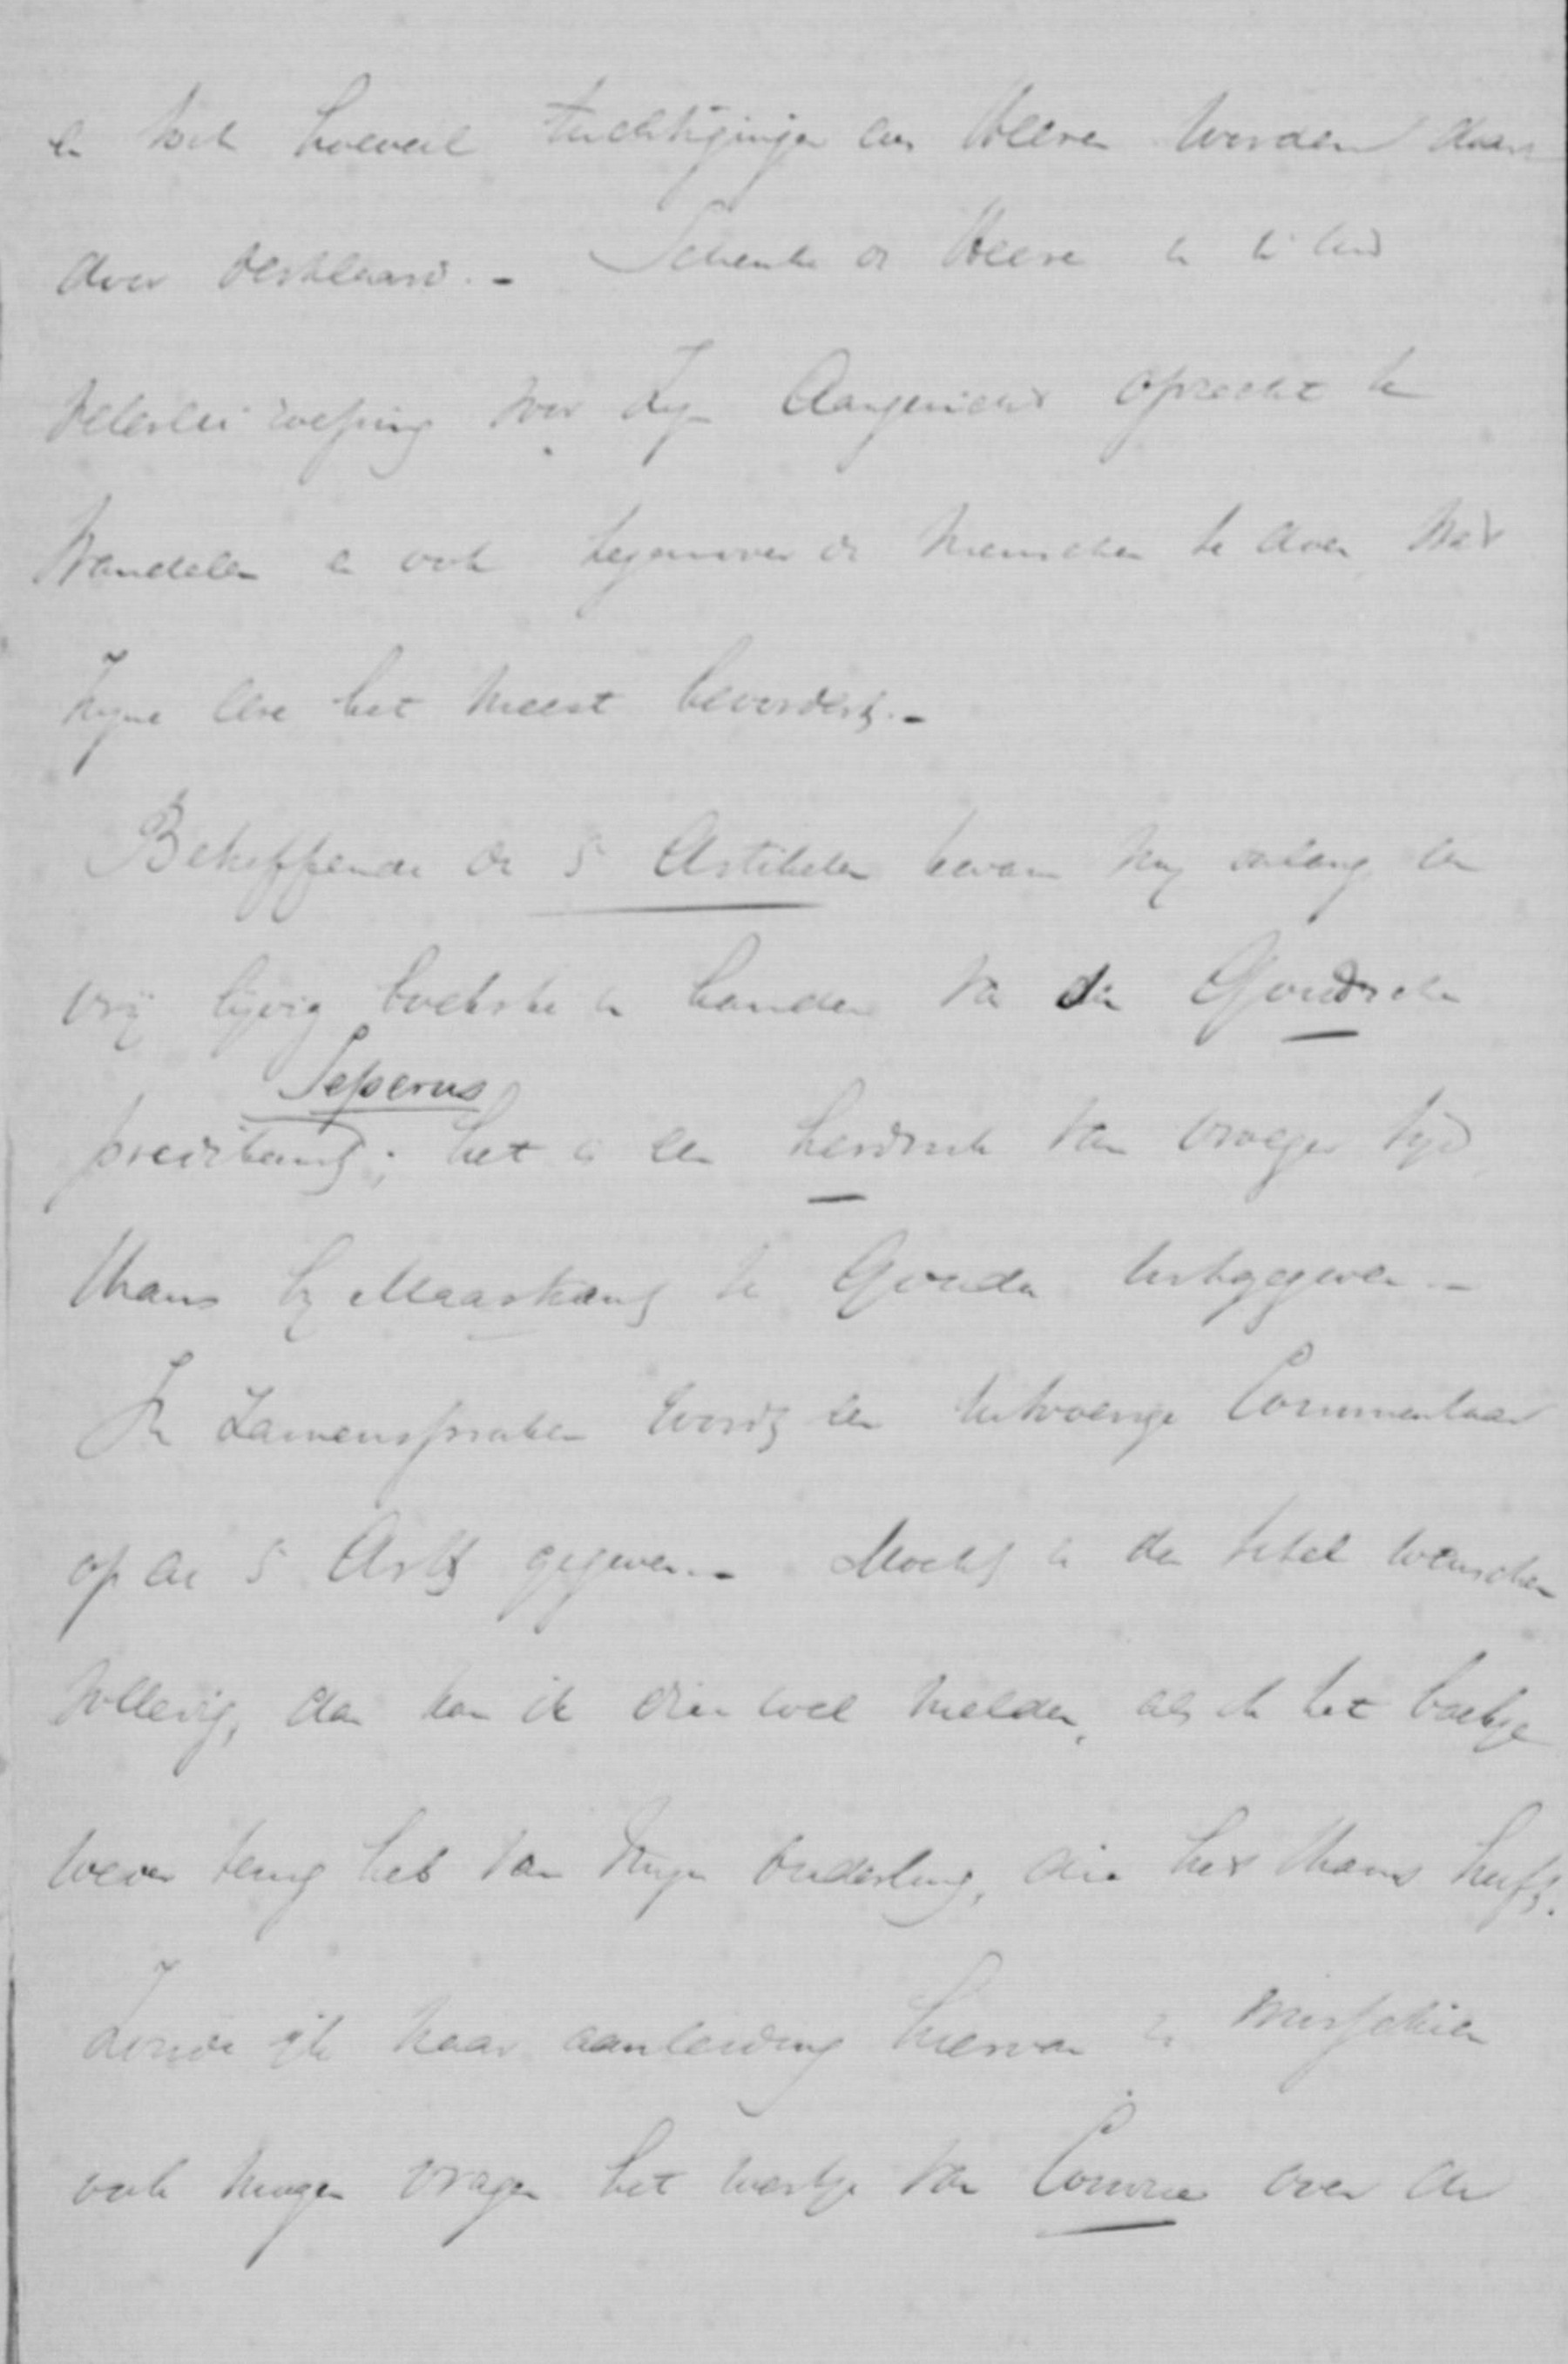 en toch hoeveel tuchtigingen des Heeren worden daar
door verklaard. – Schenke de Heere u in uw
velerlei roeping voor Zijn Aangezicht oprecht te
wandelen en ook tegenover de menschen te doen wat
Zijne eere het meest bevordert. –
Betreffende de 5 Artikelen kwam mij onlang een
vrij lijvig boekske in handen van den Goudschen
Seperus
predikant; het is een herdruk van vroeger tijd,
thans bij Maaskant te Gouda uitgegeven –
In zamenspraken wordt een uitvoerige Commentaar
op de 5 Artt gegeven. – Mocht u den titel wenschen
volledig, dan kan ik dien wel melden, als ik het boekje
weer terug heb van mijn ouderling, die het thans heeft.
Zoude ik naar aanleiding hiervan u misschien
ook mogen vragen het werkje van Comrie over de